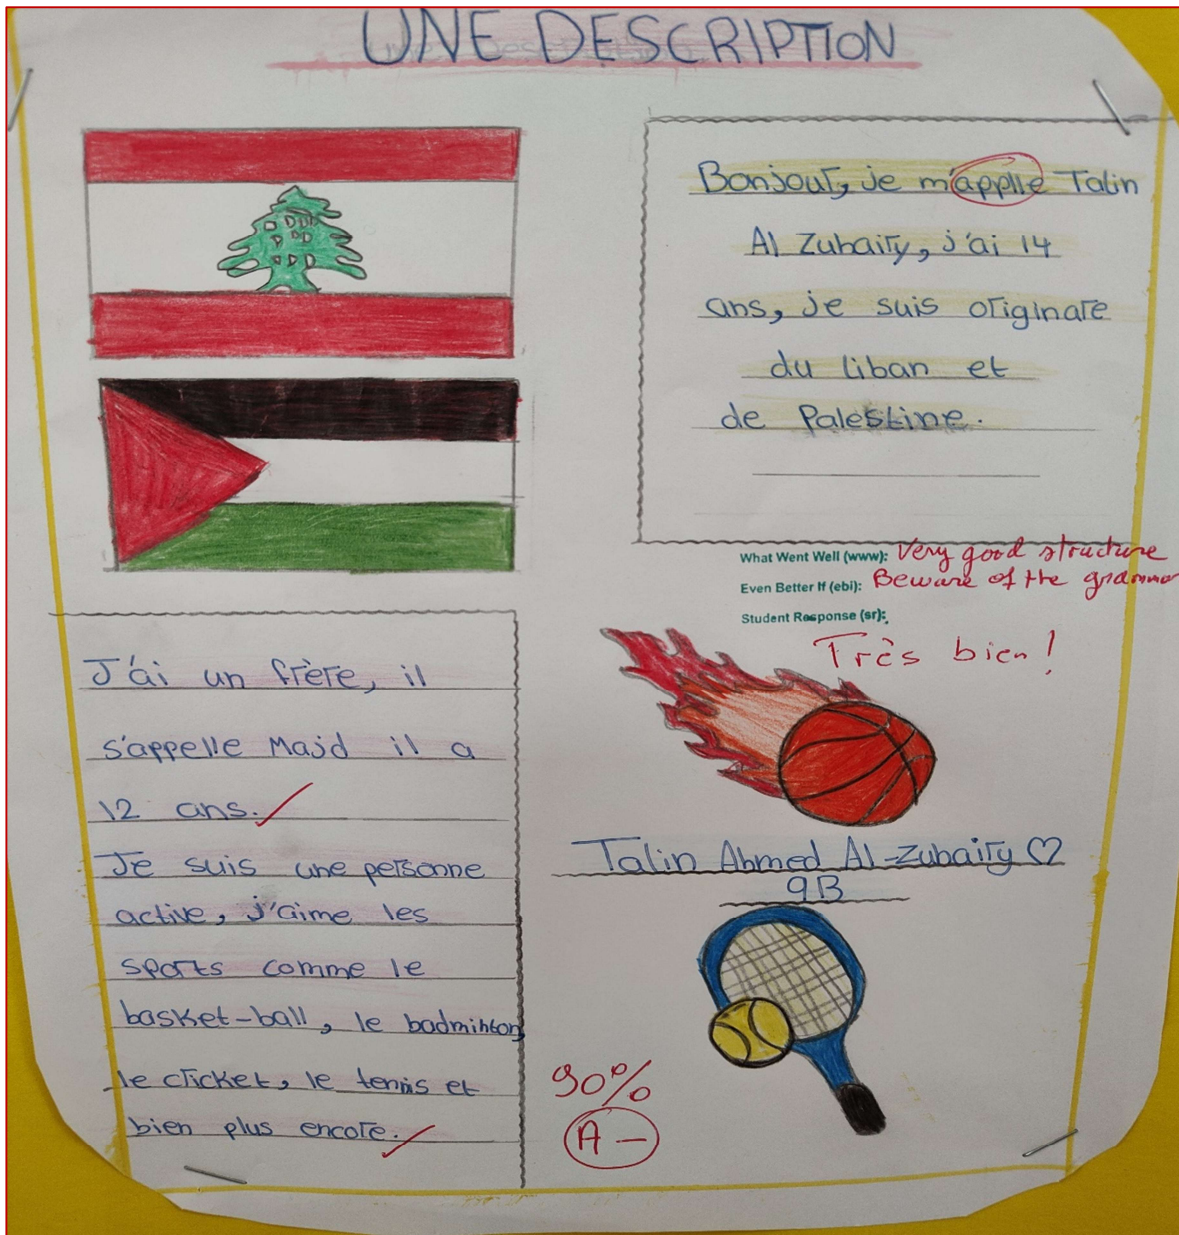 UNE DESCRIPTION
Bonjour, je m'applle Talin
Al Zubairy, j'ai 14
ans, je suis originare
du liban et
de Palestine.
What Went Well (www): Very good structure
Even Better If (ebi): Beware of the grammar
Student Response (sr):
Très bien!
J'ai un frère, il
s'appelle Majd il a
12 ans.
Je suis une personne
active, j'aime les
sports comme le
basket-ball, le badminton,
le cricket, le tennis et
bien plus encore.
Talin Ahmed Al-Zubairy ♡
9B
90%
A-